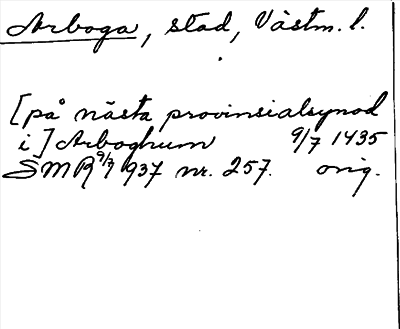 Arboga, stad, Västm. l.
[på nästa provinsialsynod
i] Arboghum 9/7 1435
SMR 9/7 937 nr. 257. orig.